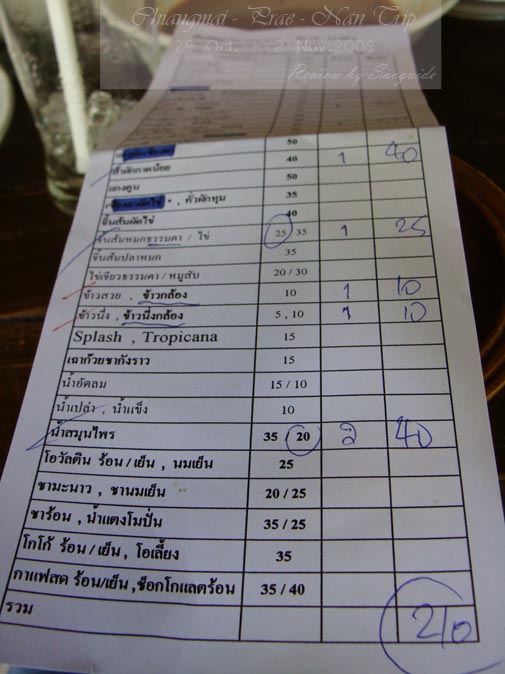 Chiangmai - Prae - Nan Trip
29 Oct. - 2 Nov.2009
Review by Saoguide
50
ส้าผักกาดน้อย 40 1 40
แกงคูน 50
, คั่วผักหุม 35
จิ้นส้มผัดไข่ 40
จิ้นส้มหมกธรรมดา / ไข่ 25/ 35 1 25
จิ้นส้มปลาหมก 35
ไข่เจียวธรรมดา / หมูสับ 20 / 30
ข้าวสวย , ข้าวกล้อง 10 1 10
ข้าวนึ่ง , ข้าวนึ่งกล้อง 5 , 10 1 10
Splash , Tropicana 15
เฉาก๊วยชากังราว 15
น้ำอัดลม 15 / 10
น้ำเปล่า , น้ำแข็ง 10
น้ำสมุนไพร 35 / 20 2 40
โอวัลติน ร้อน/เย็น , นมเย็น 25
ชามะนาว , ชานมเย็น 20 / 25
ชาร้อน , น้ำแตงโมปั่น 35 / 25
โกโก้ ร้อน/เย็น , โอเลี้ยง 35
กาแฟสด ร้อน/เย็น ,ช็อกโกแลตร้อน 35 / 40
รวม 210